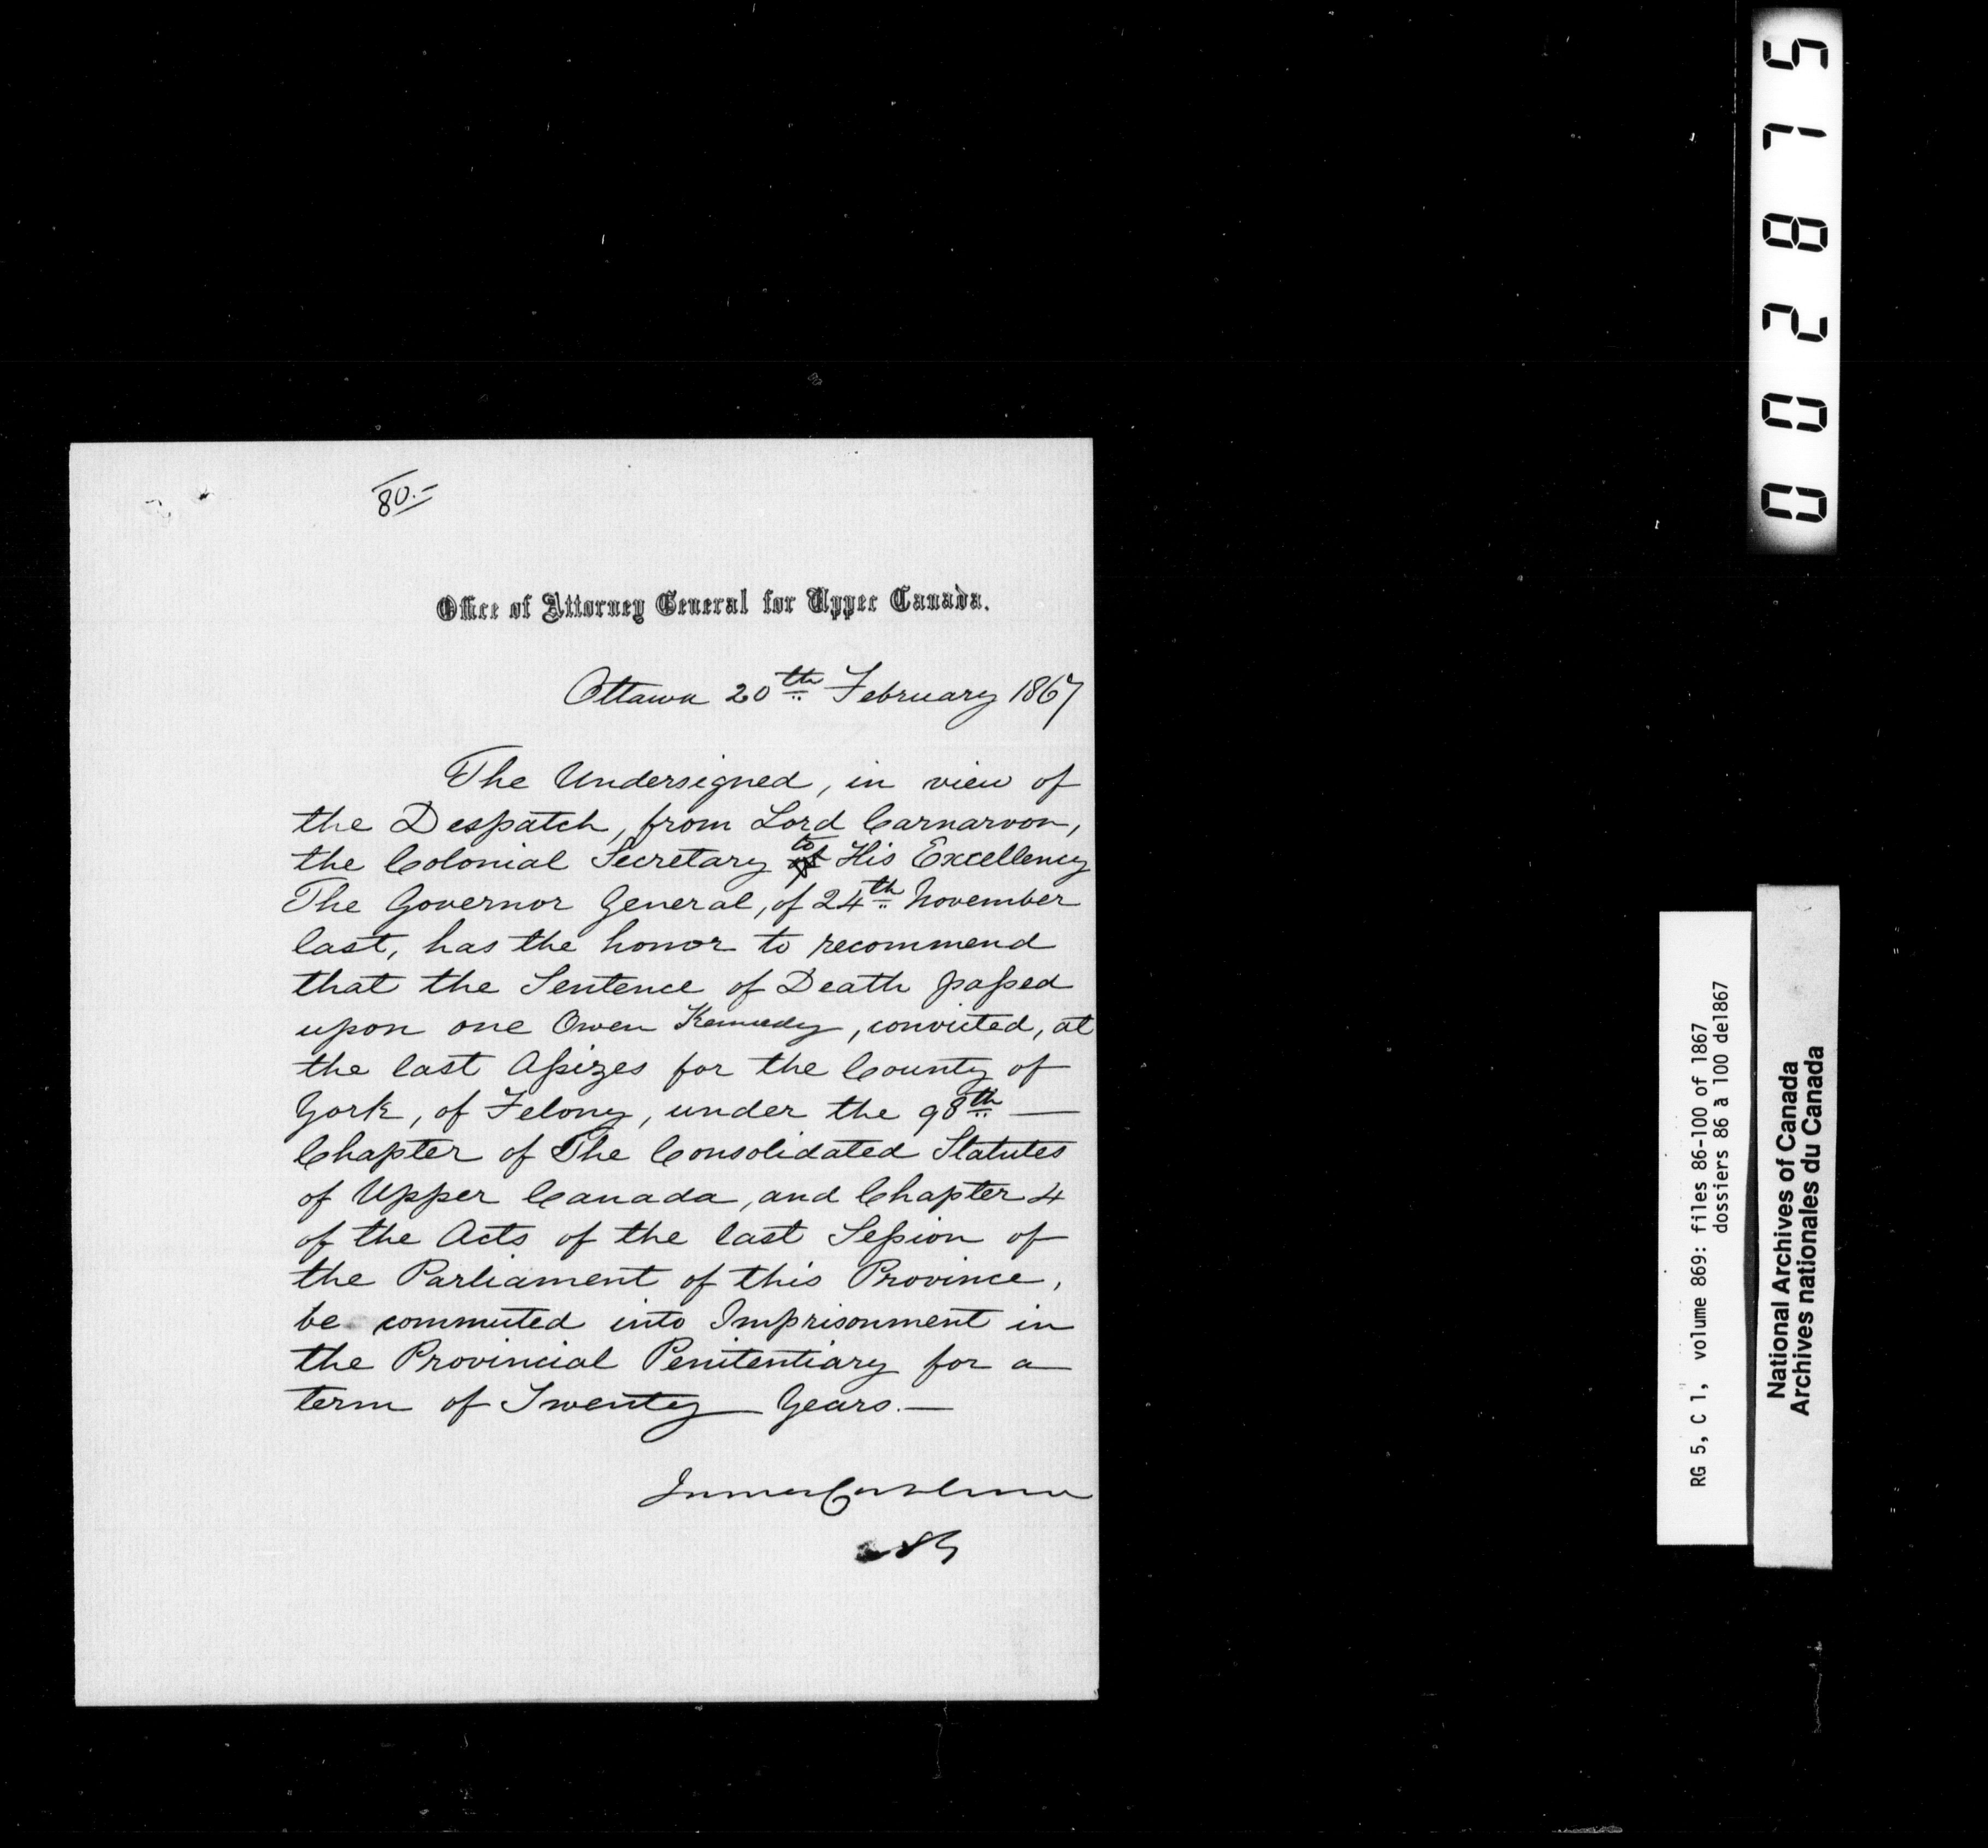 80.-
Office of Attorney General for Upper Canada.
Ottawa 20th February 1867
The Undersigned, in view of
the Despatch, from Lord Carnarvon,
the Colonial Secretary to His Excellency
The Governor General, of 24th November
last, has the honor to recommend
that the Sentence of Death passed
upon one Owen Kennedy, convicted, at
the last Assizes for the County of
York, of Felony, under the 98th —
Chapter of The Consolidated Statutes
of Upper Canada, and Chapter 4
of the Acts of the last Session of
the Parliament of this Province,
be commuted into Imprisonment in
the Provincial Penitentiary for a
term of Twenty Years.—
002875
RG 5, C 1, volume 869: files 86-100 of 1867
dossiers 86 à 100 de1867
National Archives of Canada
Archives nationales du Canada